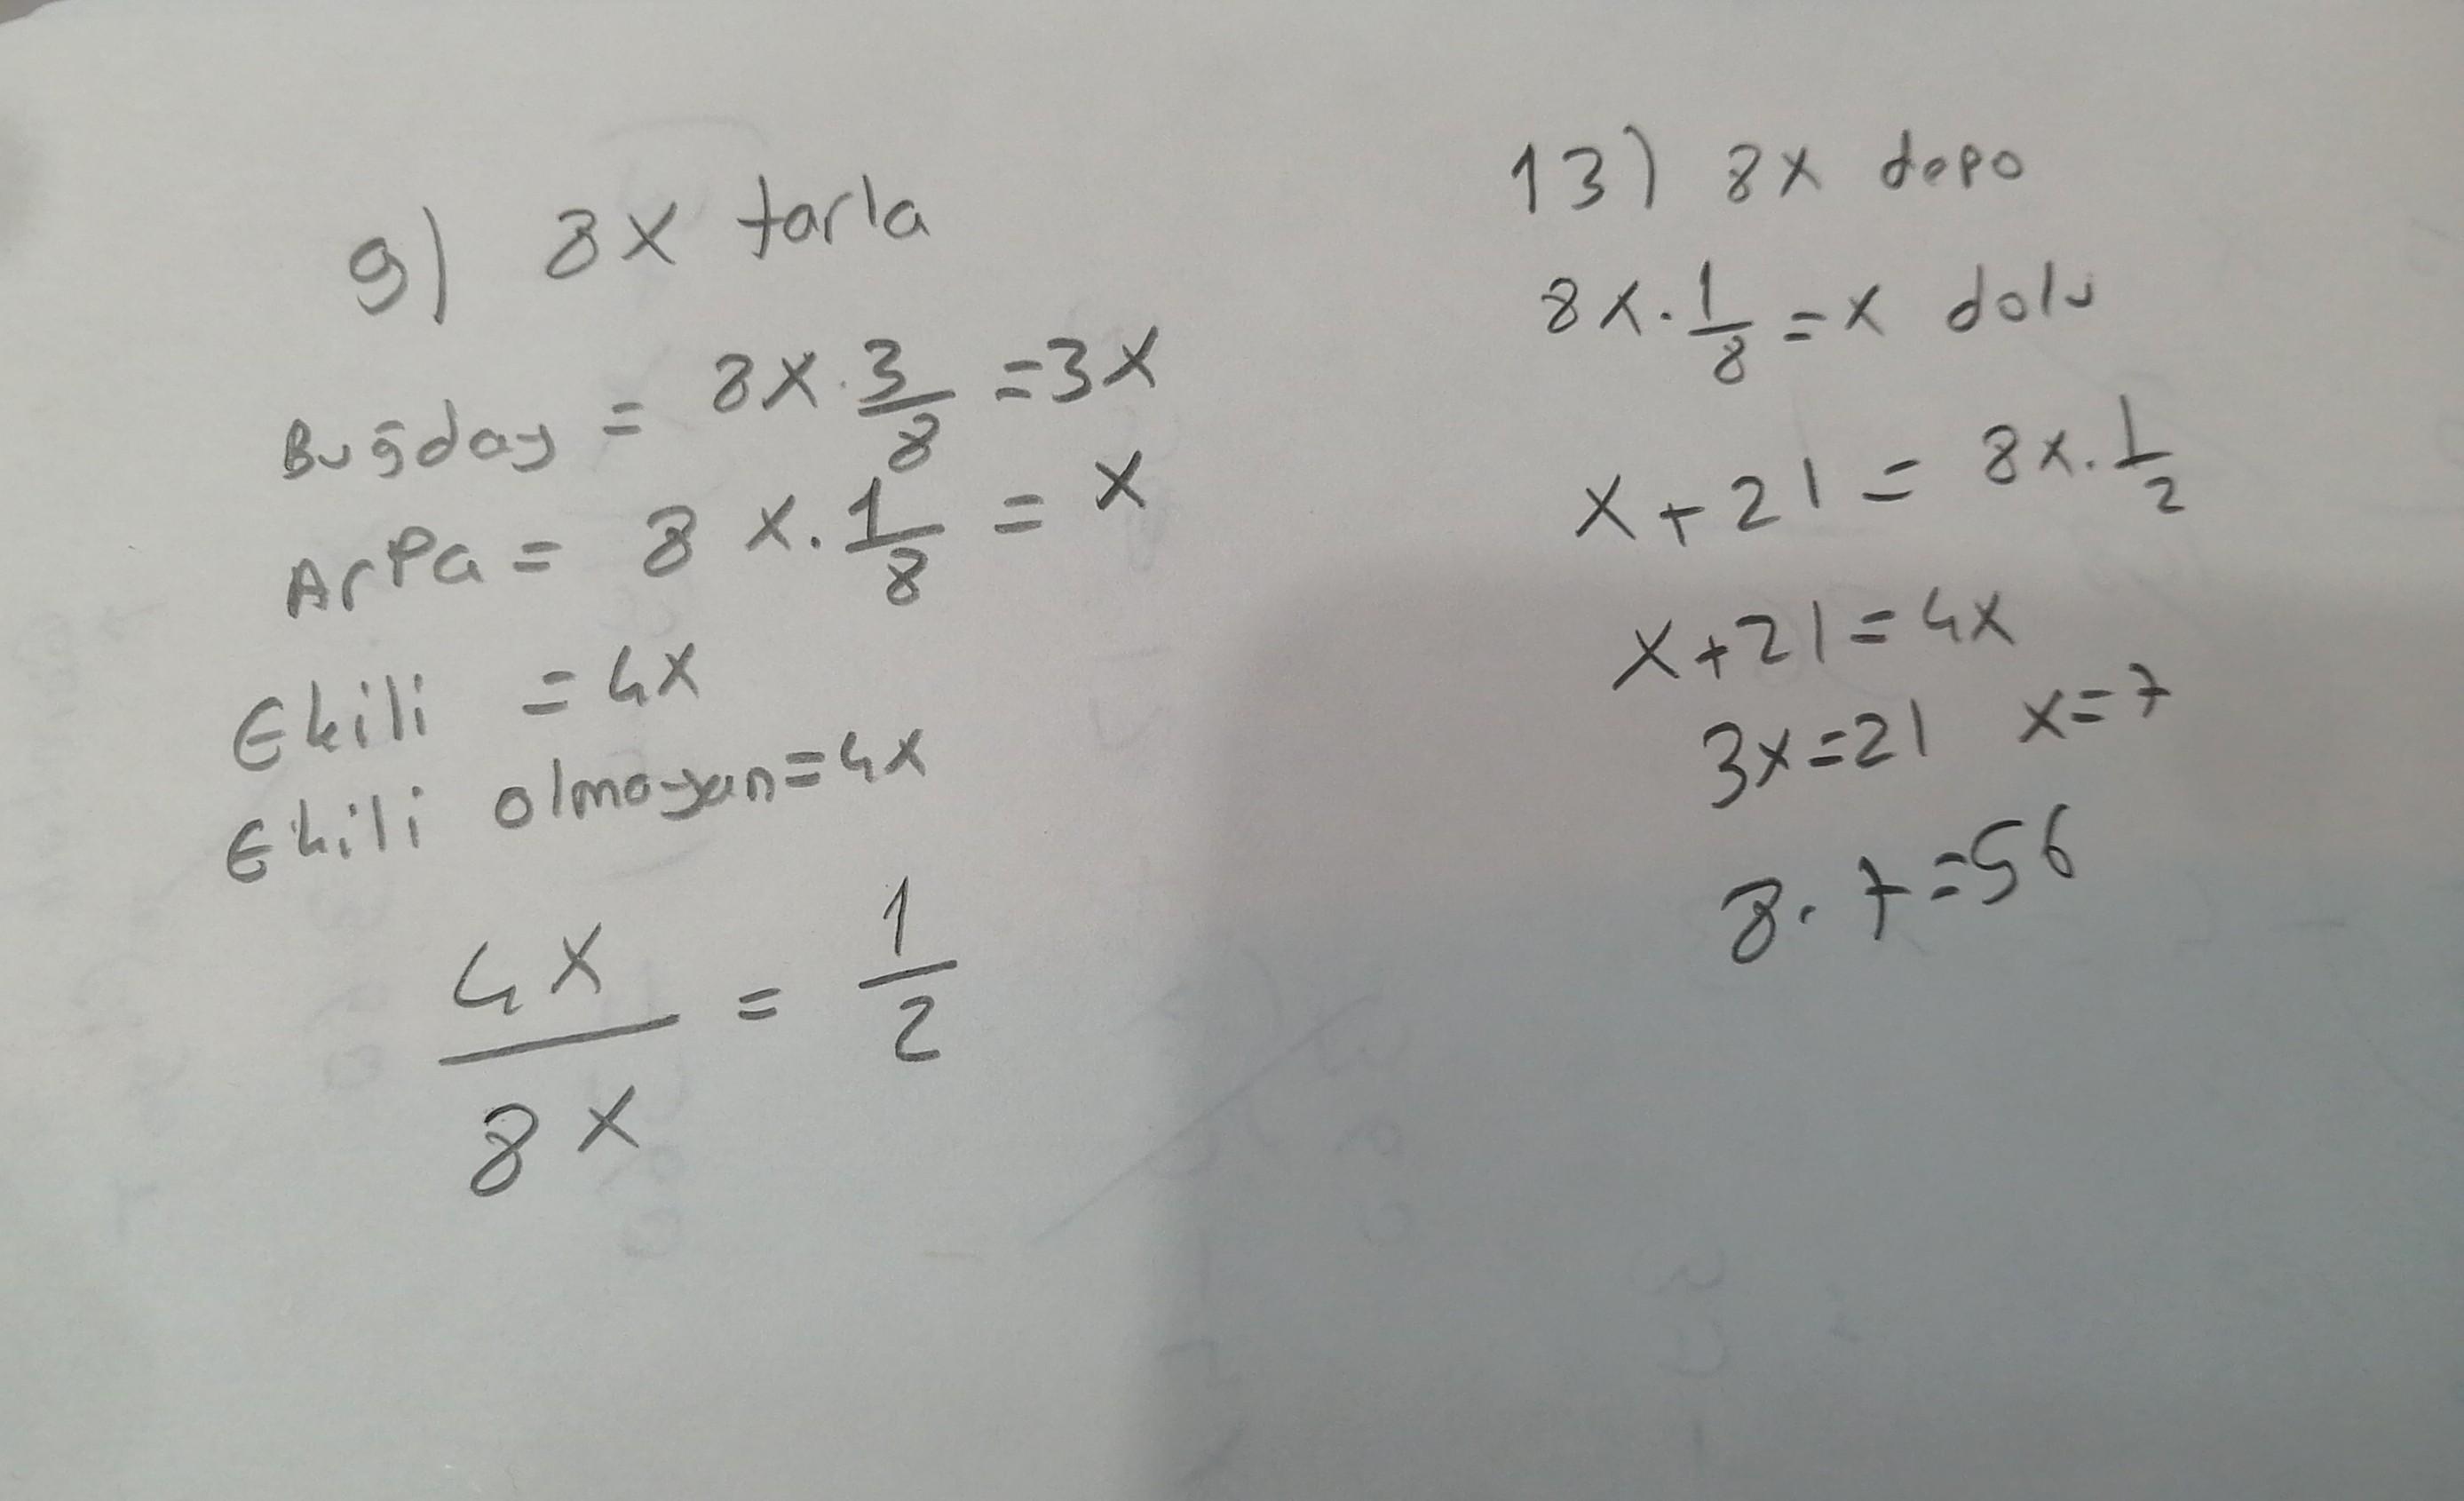 9) 8x tarla
Buğday = 8x . 3/8 = 3x
Arpa = 8x . 1/8 = x
Ekili = 4x
Ekili olmayan = 4x
4x/8x = 1/2
13) 8x depo
8x . 1/8 = x dolu
x + 21 = 8x . 1/2
x + 21 = 4x
3x = 21 x = 7
8 . 7 = 56